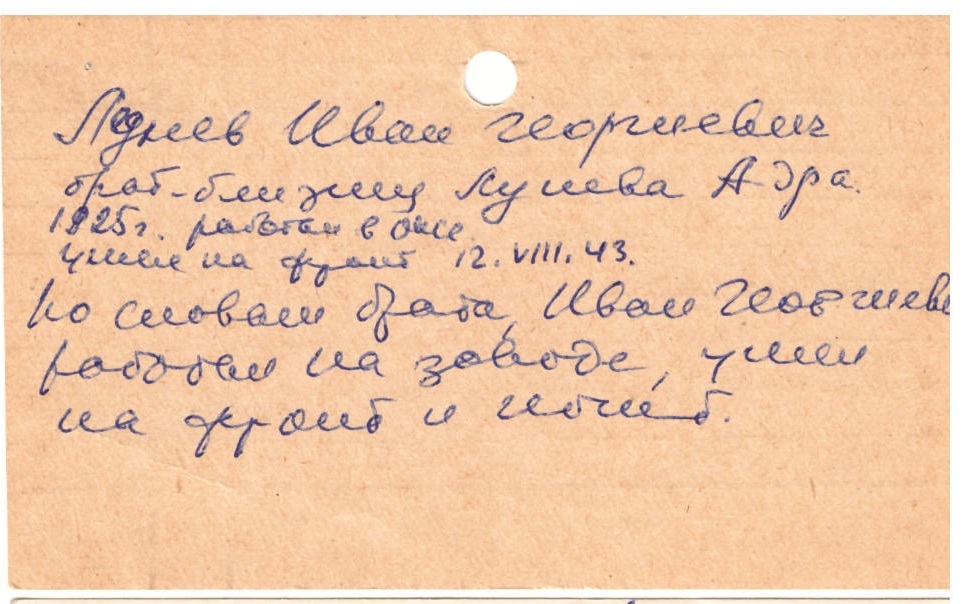 Лунев Иван Георгиевич
брат-близнец Лунева А-дра.
1925г. работал в
ушел на фронт 12.VIII.43.
По словам брата, Иван Георгиеви
работал на заводе, ушел
на фронт и погиб.